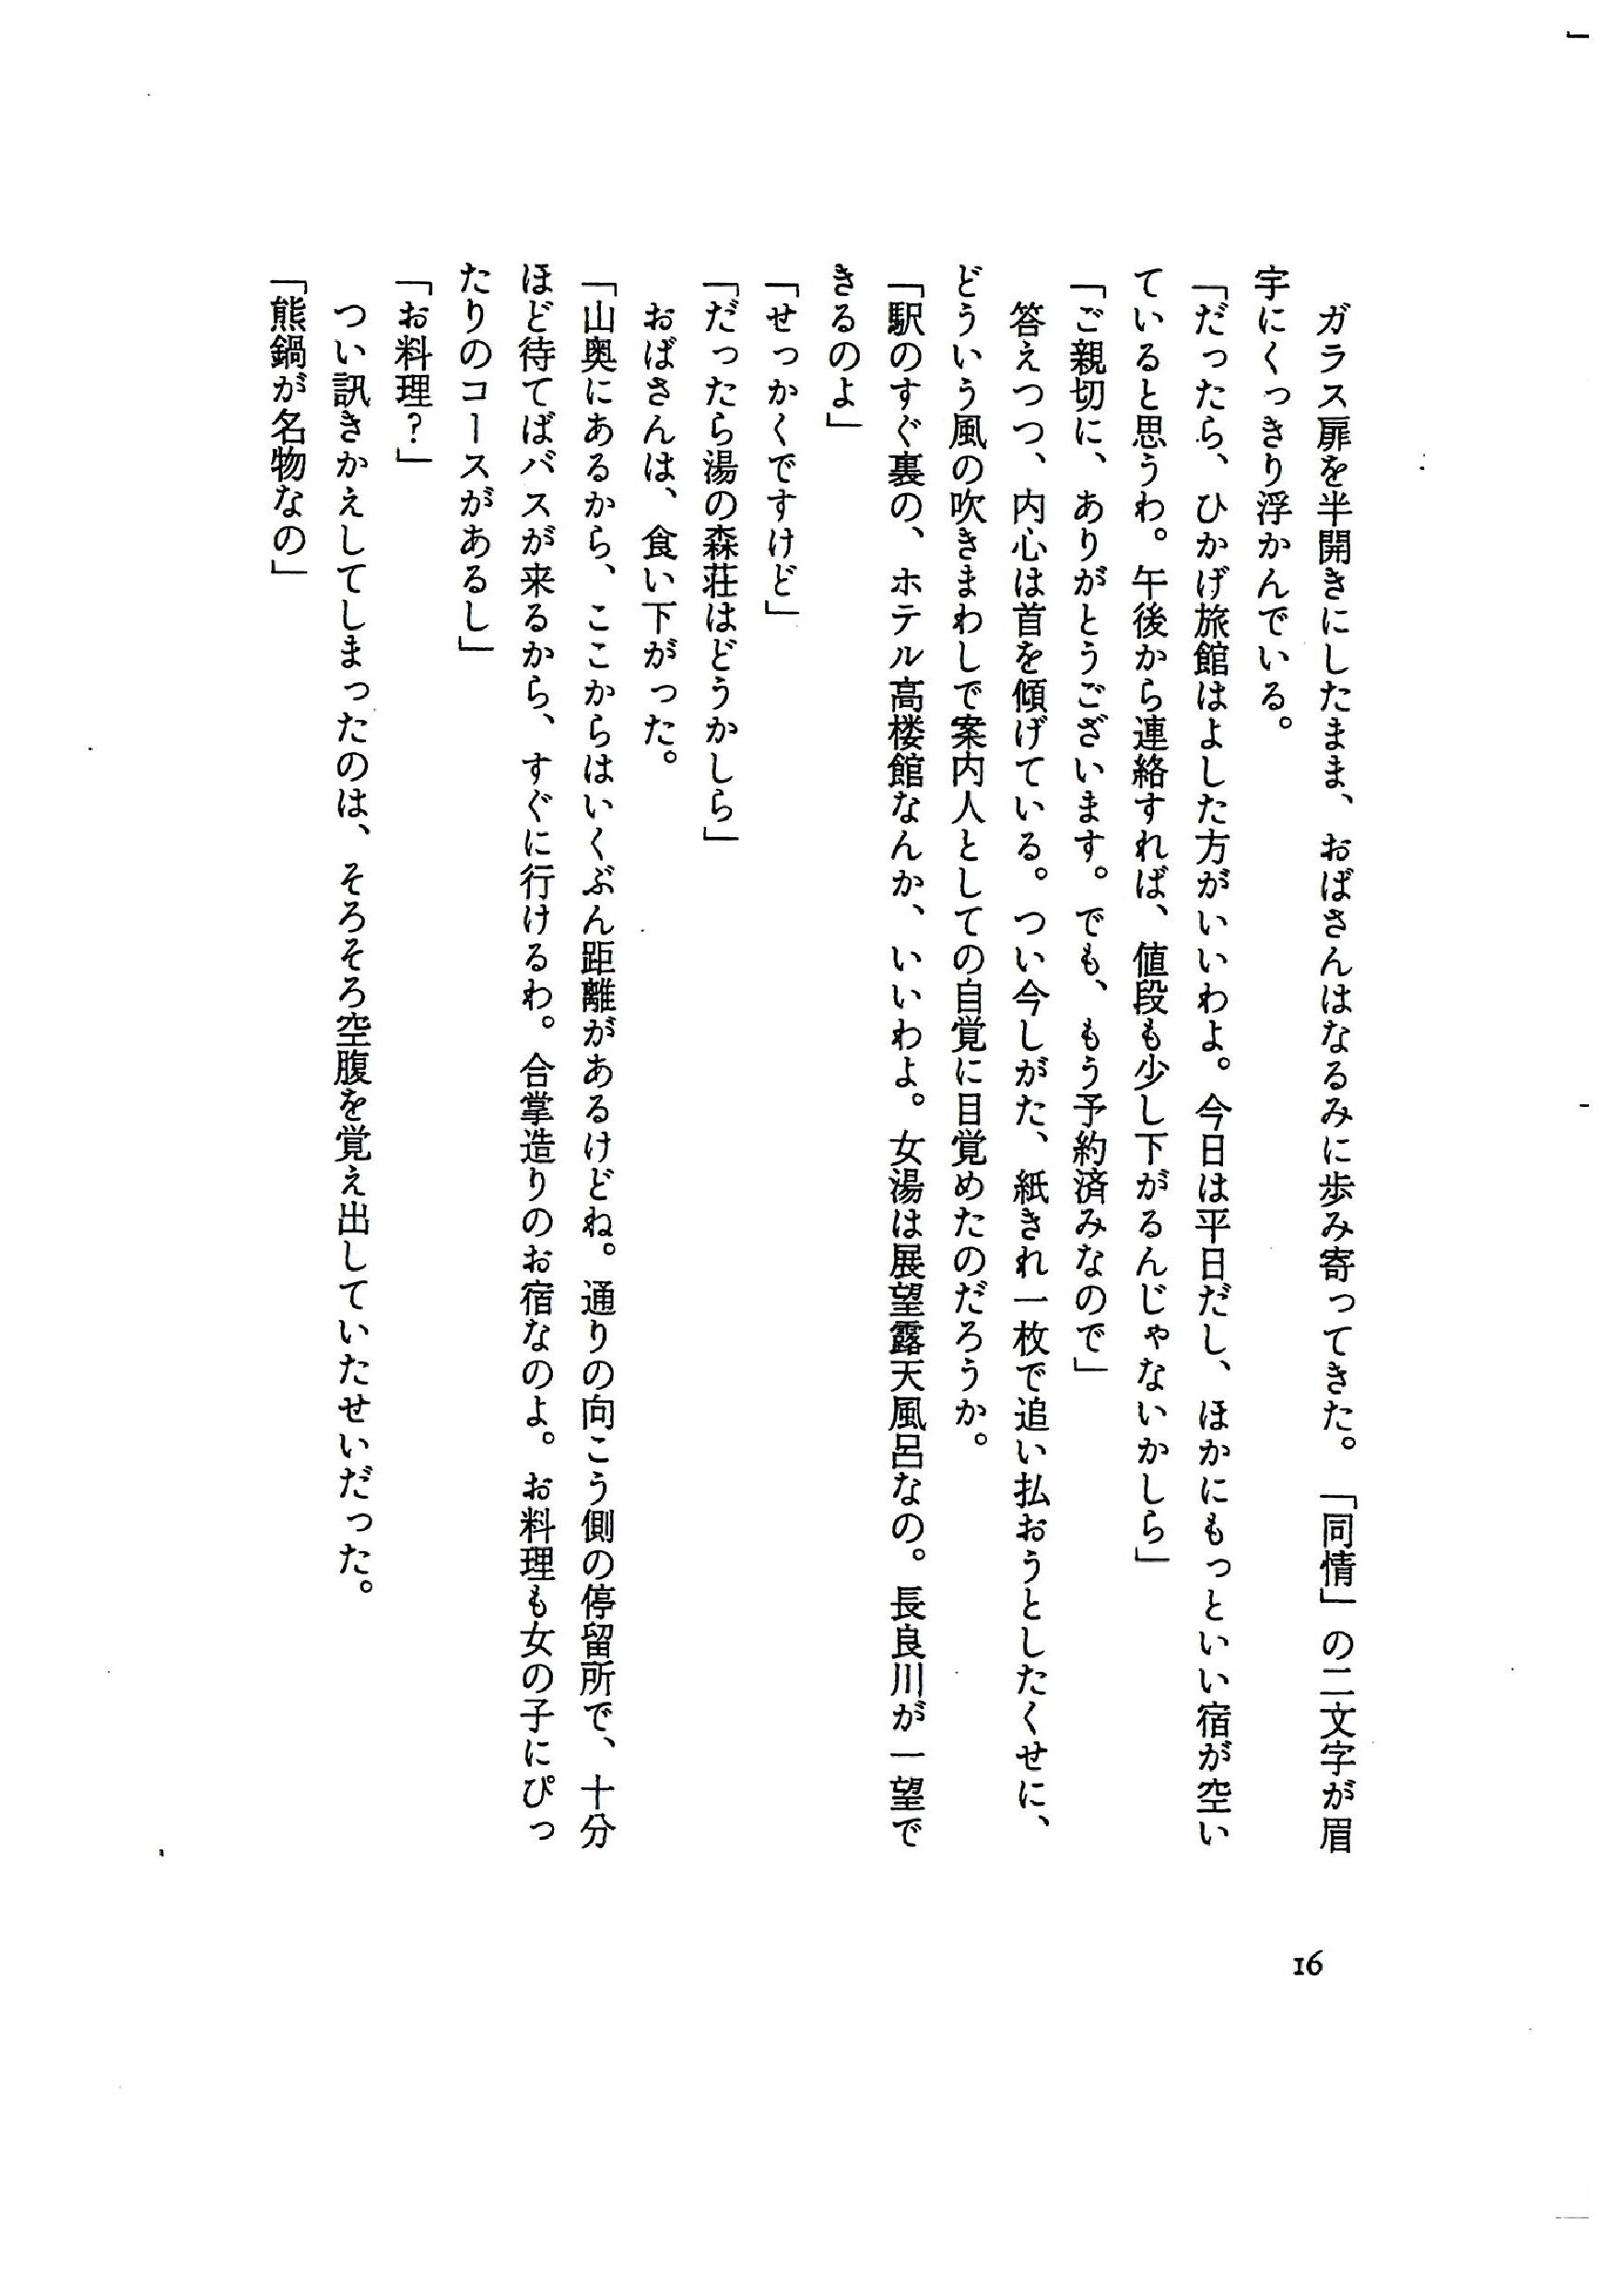 ガラス扉を半開きにしたまま、おばさんはなるみに歩み寄ってきた。「同情」の二文字が眉
宇にくっきり浮かんでいる。
「だったら、ひかげ旅館はよした方がいいわよ。今日は平日だし、ほかにもっといい宿が空い
ていると思うわ。午後から連絡すれば、値段も少し下がるんじゃないかしら」
「ご親切に、ありがとうございます。でも、もう予約済みなので」
答えつつ、内心は首を傾げている。つい今しがた、紙きれ一枚で追い払おうとしたくせに、
どういう風の吹きまわしで案内人としての自覚に目覚めたのだろうか。
「駅のすぐ裏の、ホテル高楼館なんか、いいわよ。女湯は展望露天風呂なの。長良川が一望で
きるのよ」
「せっかくですけど」
「だったら湯の森荘はどうかしら」
おばさんは、食い下がった。
「山奥にあるから、ここからはいくぶん距離があるけどね。通りの向こう側の停留所で、十分
ほど待てばバスが来るから、すぐに行けるわ。合掌造りのお宿なのよ。お料理も女の子にぴっ
たりのコースがあるし」
「お料理？」
つい訊きかえしてしまったのは、そろそろ空腹を覚え出していたせいだった。
「熊鍋が名物なの」
16